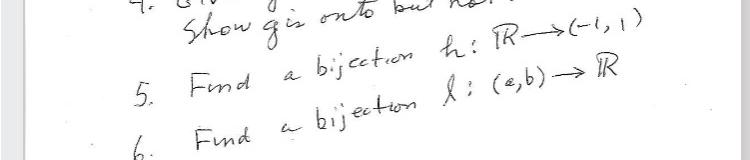 Show g is onto but
5. Find a bijection h: ℝ→(-1, 1)
6. Find a bijection l: (a,b)→ ℝ